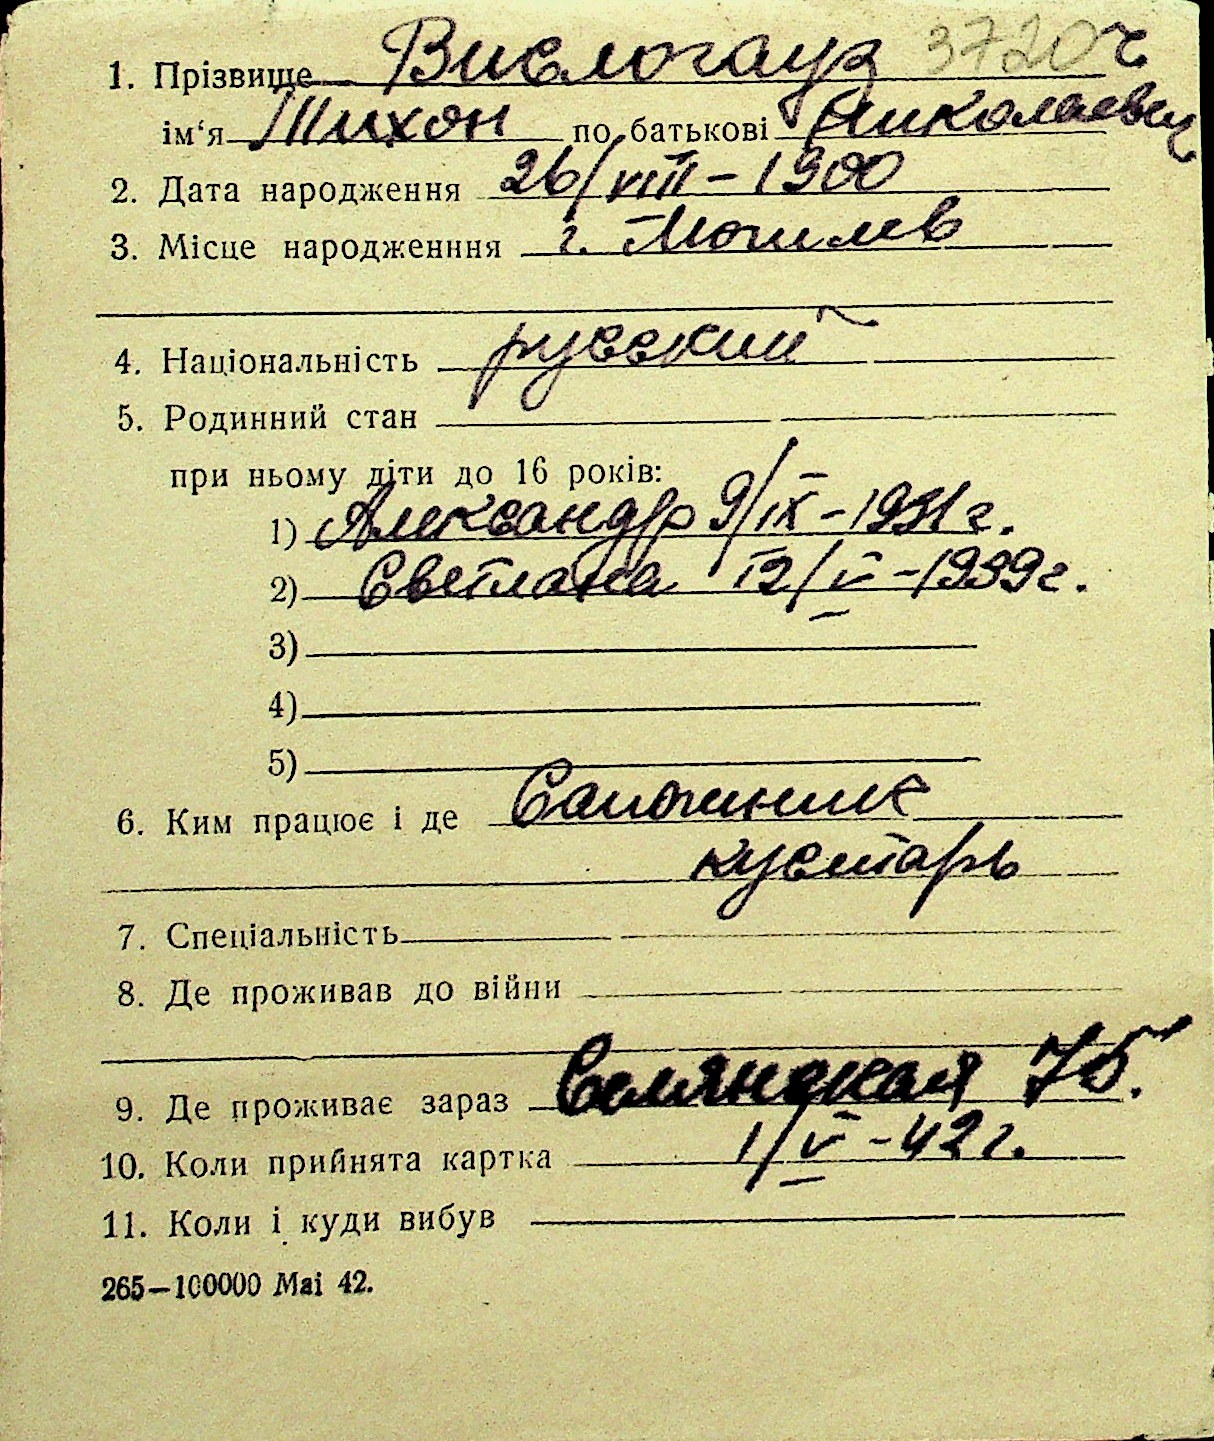 1. Прізвище Вислогауз 3720 ч
ім‘я Тихон по батькові Николаевич
2. Дата народження 26/VIII – 1900
3. Місце народженння г. Могилев
4. Національність русский
5. Родинний стан
при ньому діти до 16 років:
1) Александр 9/IX – 1931 г.
2) Светлана 12/V – 1939 г.
3)
4)
5)
6. Ким працює і де Сапожник
кустарь
7. Спеціальність
8. Де проживав до війни
9. Де проживає зараз 75.
10. Коли прийнята картка 1/V – 42 г.
11. Коли і куди вибув
265—100000 Mai 42.